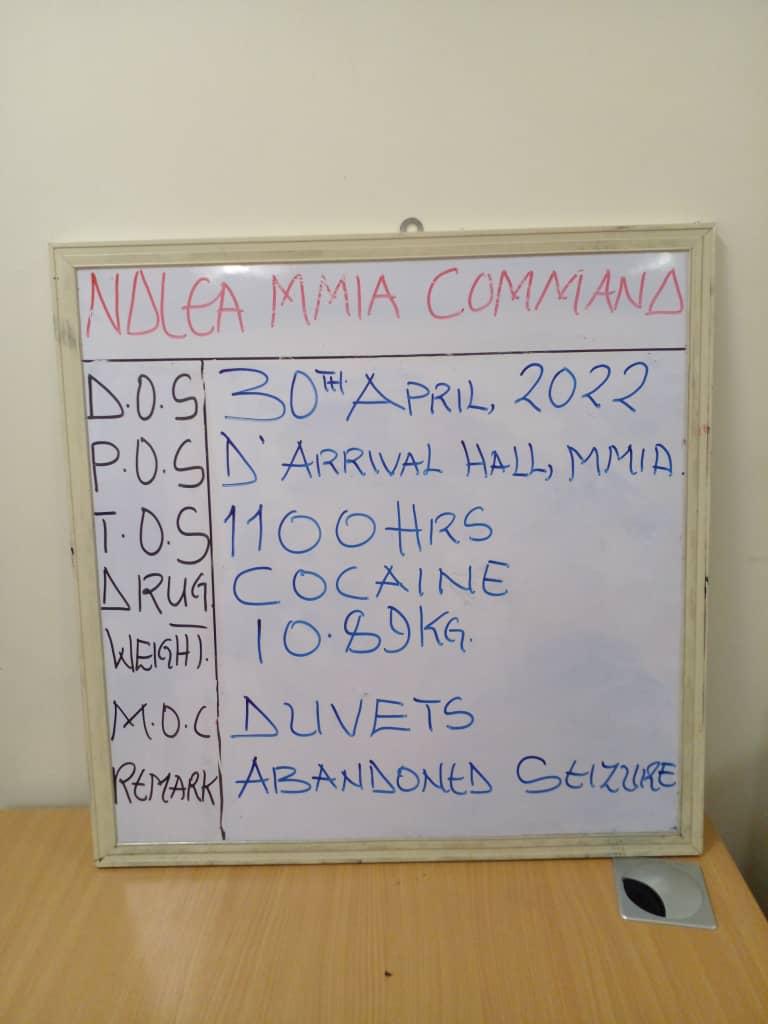 NDLEA MMIA COMMAND
D.O.S 30TH APRIL, 2022
P.O.S D' ARRIVAL HALL, MMIA.
T.O.S 1100HRS
DRUG COCAINE
WEIGHT. 10.89KG.
M.O.C DUVETS
REMARK ABANDONED SEIZURE